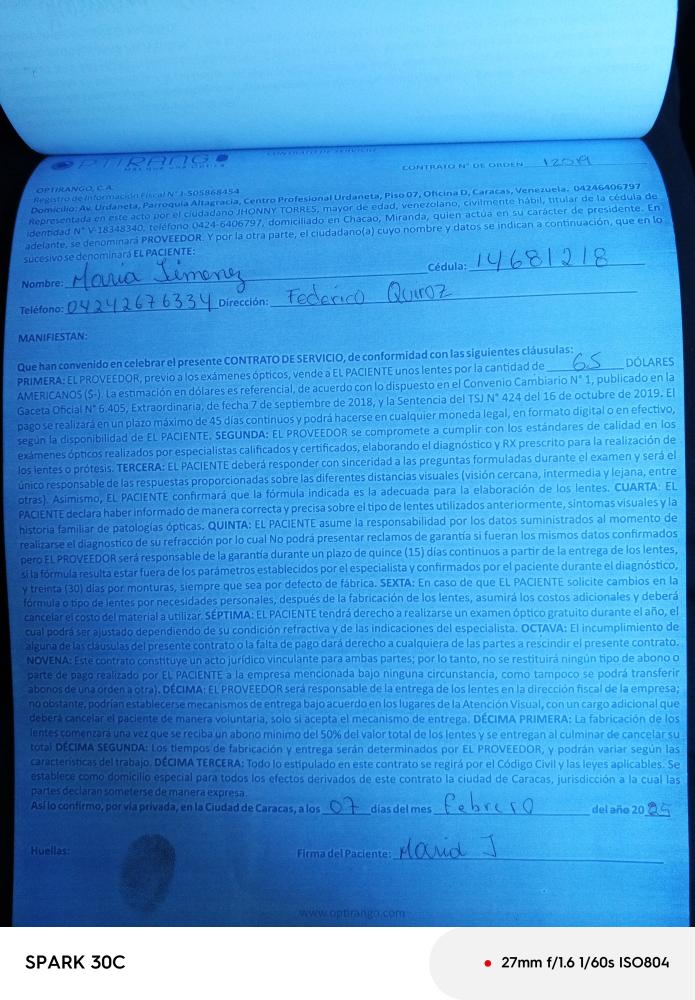 OPTIRANGO
CONTRATO DE SERVICIO
CONTRATO N° DE ORDEN 12019
OPTIRANGO, C.A.
Registro de Información Fiscal N° J-505868454
Domicilio: Av. Urdaneta, Parroquia Altagracia, Centro Profesional Urdaneta, Piso 07, Oficina D, Caracas, Venezuela. 04246406797
Representada en este acto por el ciudadano JHONNY TORRES, mayor de edad, venezolano, civilmente hábil, titular de la cédula de
identidad N° V-18348340, teléfono 0424-6406797, domiciliado en Chacao, Miranda, quien actúa en su carácter de presidente. En
adelante, se denominará PROVEEDOR. Y por la otra parte, el ciudadano(a) cuyo nombre y datos se indican a continuación, que en lo
sucesivo se denominará EL PACIENTE:
Nombre: Maria Jimenez Cédula: 14681218
Teléfono: 04242676334 Dirección: Federico Quiroz
MANIFIESTAN:
Que han convenido en celebrar el presente CONTRATO DE SERVICIO, de conformidad con las siguientes cláusulas:
PRIMERA: EL PROVEEDOR, previo a los exámenes ópticos, vende a EL PACIENTE unos lentes por la cantidad de 65 DÓLARES
AMERICANOS ($-). La estimación en dólares es referencial, de acuerdo con lo dispuesto en el Convenio Cambiario N° 1, publicado en la
Gaceta Oficial N° 6.405, Extraordinaria, de fecha 7 de septiembre de 2018, y la Sentencia del TSJ N° 424 del 16 de octubre de 2019. El
pago se realizará en un plazo máximo de 45 días continuos y podrá hacerse en cualquier moneda legal, en formato digital o en efectivo,
según la disponibilidad de EL PACIENTE. SEGUNDA: EL PROVEEDOR se compromete a cumplir con los estándares de calidad en los
exámenes ópticos realizados por especialistas calificados y certificados, elaborando el diagnóstico y RX prescrito para la realización de
los lentes o prótesis. TERCERA: EL PACIENTE deberá responder con sinceridad a las preguntas formuladas durante el examen y será el
único responsable de las respuestas proporcionadas sobre las diferentes distancias visuales (visión cercana, intermedia y lejana, entre
otras). Asimismo, EL PACIENTE confirmará que la fórmula indicada es la adecuada para la elaboración de los lentes. CUARTA: EL
PACIENTE declara haber informado de manera correcta y precisa sobre el tipo de lentes utilizados anteriormente, síntomas visuales y la
historia familiar de patologías ópticas. QUINTA: EL PACIENTE asume la responsabilidad por los datos suministrados al momento de
realizarse el diagnostico de su refracción por lo cual No podrá presentar reclamos de garantía si fueran los mismos datos confirmados
pero EL PROVEEDOR será responsable de la garantía durante un plazo de quince (15) días continuos a partir de la entrega de los lentes,
si la fórmula resulta estar fuera de los parámetros establecidos por el especialista y confirmados por el paciente durante el diagnóstico,
y treinta (30) días por monturas, siempre que sea por defecto de fábrica. SEXTA: En caso de que EL PACIENTE solicite cambios en la
fórmula o tipo de lentes por necesidades personales, después de la fabricación de los lentes, asumirá los costos adicionales y deberá
cancelar el costo del material a utilizar. SÉPTIMA: EL PACIENTE tendrá derecho a realizarse un examen óptico gratuito durante el año, el
cual podrá ser ajustado dependiendo de su condición refractiva y de las indicaciones del especialista. OCTAVA: El incumplimiento de
alguna de las cláusulas del presente contrato o la falta de pago dará derecho a cualquiera de las partes a rescindir el presente contrato.
NOVENA: Este contrato constituye un acto jurídico vinculante para ambas partes; por lo tanto, no se restituirá ningún tipo de abono o
parte de pago realizado por EL PACIENTE a la empresa mencionada bajo ninguna circunstancia, como tampoco se podrá transferir
abonos de una orden a otra). DÉCIMA: EL PROVEEDOR será responsable de la entrega de los lentes en la dirección fiscal de la empresa;
no obstante, podrían establecerse mecanismos de entrega bajo acuerdo en los lugares de la Atención Visual, con un cargo adicional que
deberá cancelar el paciente de manera voluntaria, solo si acepta el mecanismo de entrega. DÉCIMA PRIMERA: La fabricación de los
lentes comenzará una vez que se reciba un abono mínimo del 50% del valor total de los lentes y se entregan al culminar de cancelar su
total DÉCIMA SEGUNDA: Los tiempos de fabricación y entrega serán determinados por EL PROVEEDOR, y podrán variar según las
características del trabajo. DÉCIMA TERCERA: Todo lo estipulado en este contrato se regirá por el Código Civil y las leyes aplicables. Se
establece como domicilio especial para todos los efectos derivados de este contrato la ciudad de Caracas, jurisdicción a la cual las
partes declaran someterse de manera expresa.
Así lo confirmo, por vía privada, en la Ciudad de Caracas, a los 07 días del mes febrero del año 2025
Huellas: Firma del Paciente: Maria J
www.optirango.com
SPARK 30C 27mm f/1.6 1/60s ISO804